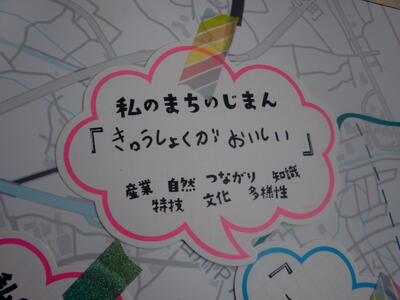 私のまちのじまん
『きゅうしょくがおいしい』
産業 自然 つながり 知識
特技 文化 多様性